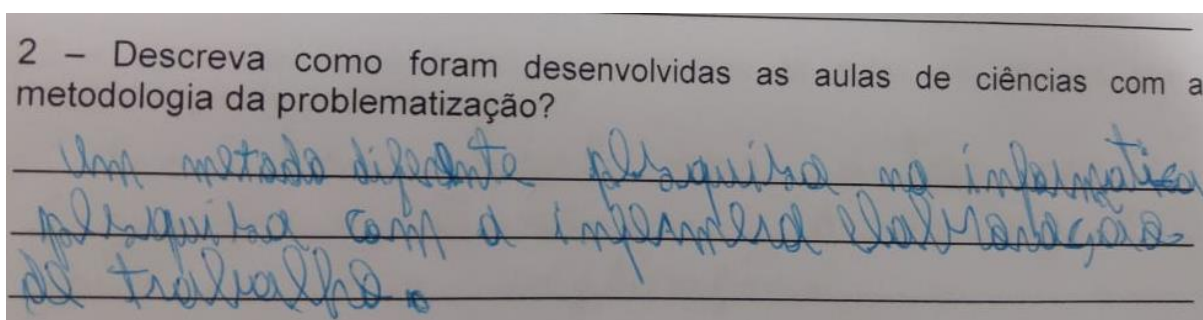 2 – Descreva como foram desenvolvidas as aulas de ciências com a
metodologia da problematização?
Um metado diferente plesquisa na informatica
plesquisa com a infermera elabroração
de trabalho.